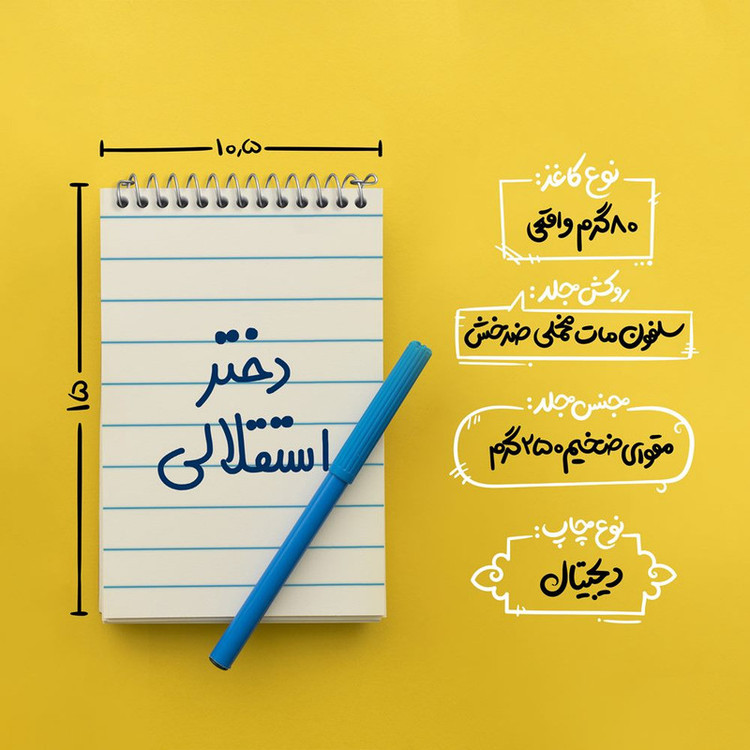 ۱۰,۵
۱۵
دختر
استقلالی
نوع کاغذ:
۸۰گرم واقعی
روکش جلد:
سلفون مات مخملی ضدخش
جنس جلد:
مقوای ضخیم ۲۵۰گرم
نوع چاپ:
دیجیتال